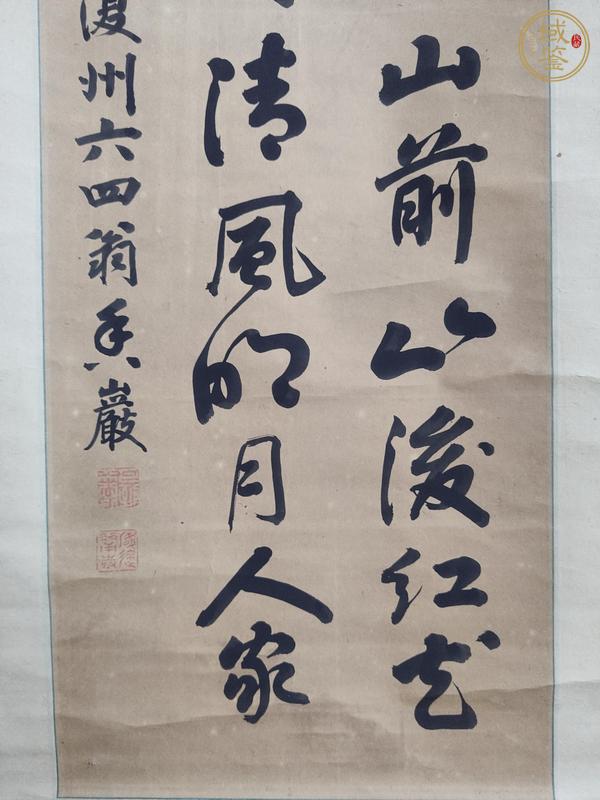 山前山後紅花
清風明月人家
復州六四翁香巖
域鉴